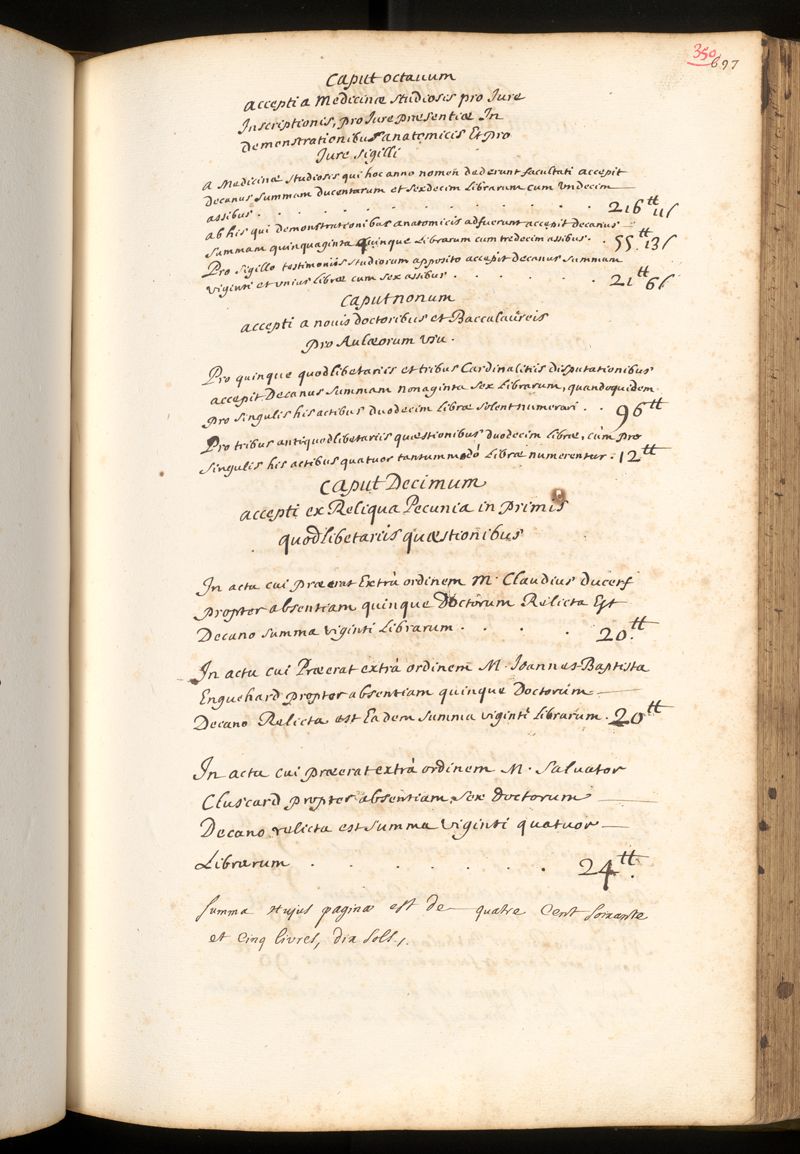 350
697
Caput octauum
accepti a Medicinæ studiosis pro Jure
Inscriptionis, pro Jure præsentiæ In
Demonstrationibus anatomicis Et pro
Jure sigilli
A Medicinæ studiosis qui hoc anno nomen dederunt facultati accepit
Decanus summam ducentarum et sexdecim Librarum cum vndecim
assibus . . . . . . . . . . 216 tt 11 s
ab his qui demonstrationibus anatomicis adfuerunt accepit decanus
summam quinquaginta quinque Librarum cum tredecim assibus . . 55 tt 13 s
Pro sigillo testimoniis studiorum apposito accepit decanus summam
viginti et vnius Libræ cum sex assibus . . . . . . 21 tt 6 s
Caput nonum
accepti a nouis doctoribus et Baccalaureis
pro Aulæorum vsu .
Pro quinque quodlibetariis et tribus Cardinalitiis disputationibus
accepit Decanus summam nonaginta sex Librarum, quandoquidem
pro singulis his actibus duodecim Libræ solent numerari . . 96 tt
Pro tribus antiquodlibetariis quæstionibus duodecim Libræ, cùm pro
singulis his actibus quatuor tantummodò Libræ numerentur . 12 tt
Caput Decimum
accepti ex Reliqua Pecunia in primis
quodlibetariis quæstionibus
In actu cui præerat Extrà ordinem M. Claudius Ducerf
propter absentiam quinque Doctorum Relicta Est
Decano summa viginti Librarum . . . . 20. tt
In actu cui Præerat extrà ordinem M. Joannes Baptista
Enguehard propter absentiam quinque Doctorum
Decano Relicta est Eadem summa viginti Librarum . 20 tt
In actu cui præerat extrà ordinem M. Saluator
Cluscard propter absentiam sex doctorum
Decano relicta est summa viginti quatuor
Librarum . . . . . . . 24. tt
Summa Hujus paginæ est de quatre Cent soixante
et Cinq livres, dix sols.